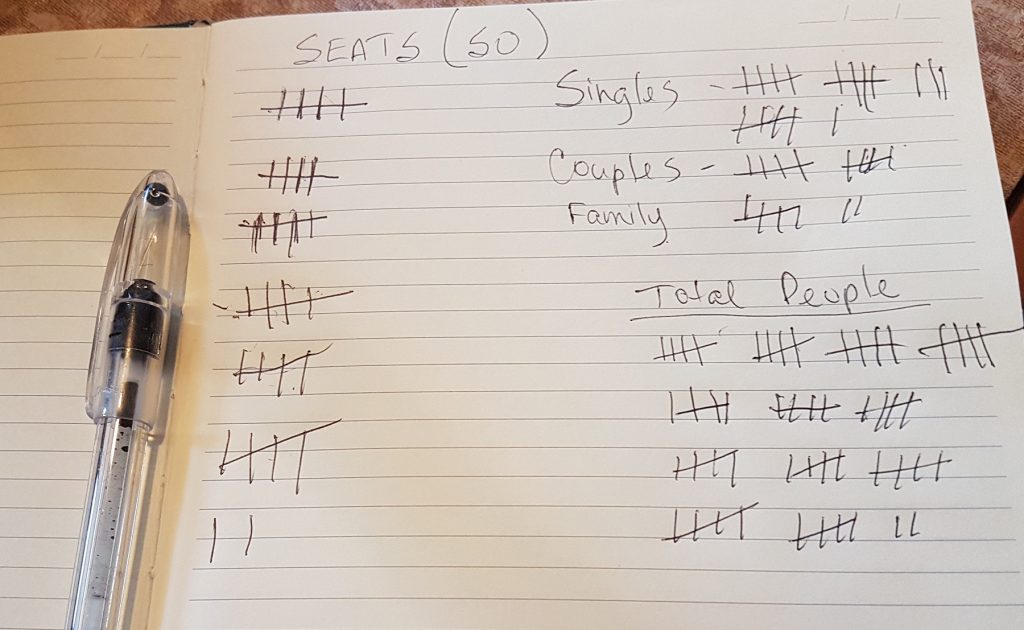 SEATS (50)
Singles -
Couples -
Family
Total People